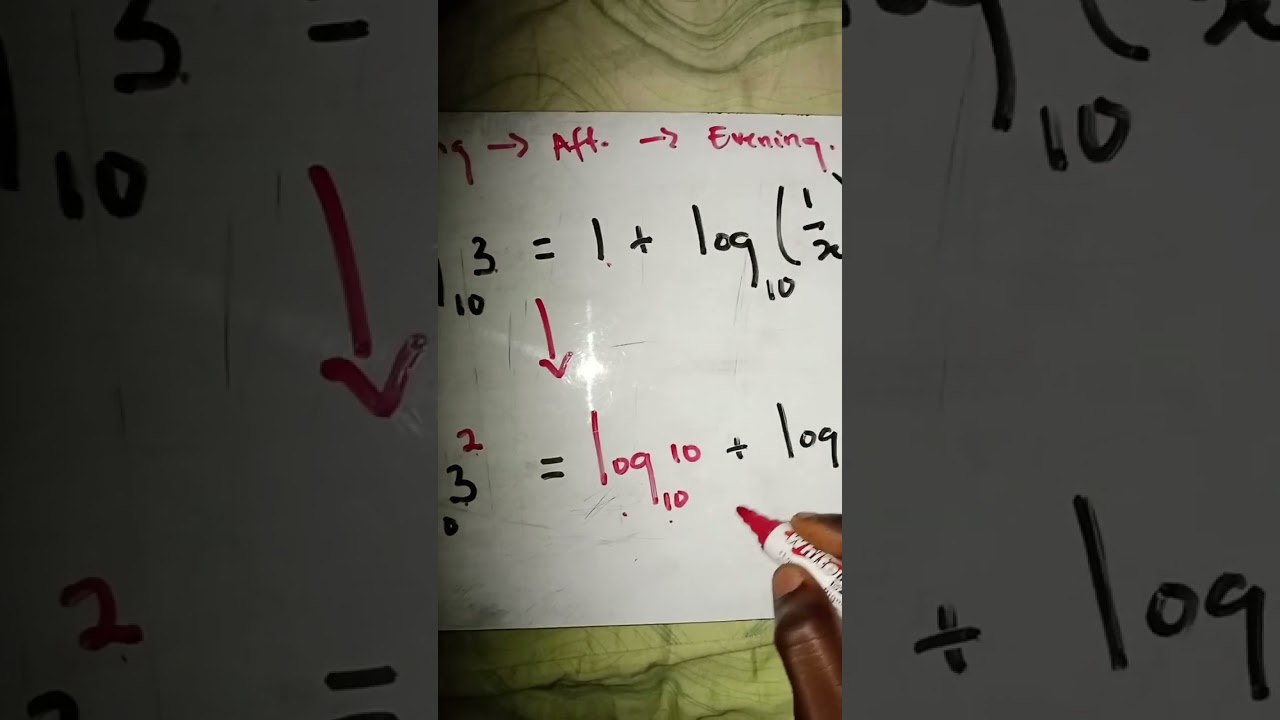 → Aft. → Evening.
3 = 1 + log₁₀ (1/x
10
3² = log₁₀ 10 + log